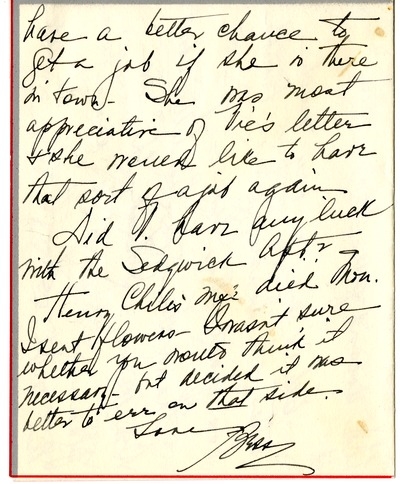 have a better chance to
get a job if she is there
in town - She was most
appreciative of Vic's letter
& she would like to have
that sort of a job again
Did V. have any luck
with the Sedgwick apt?
Henry Chiles' died Mon.
I sent flowers - I wasn't sure
whether you would think it
necessary - but decided it was
better to err on that side.
Love
Bess